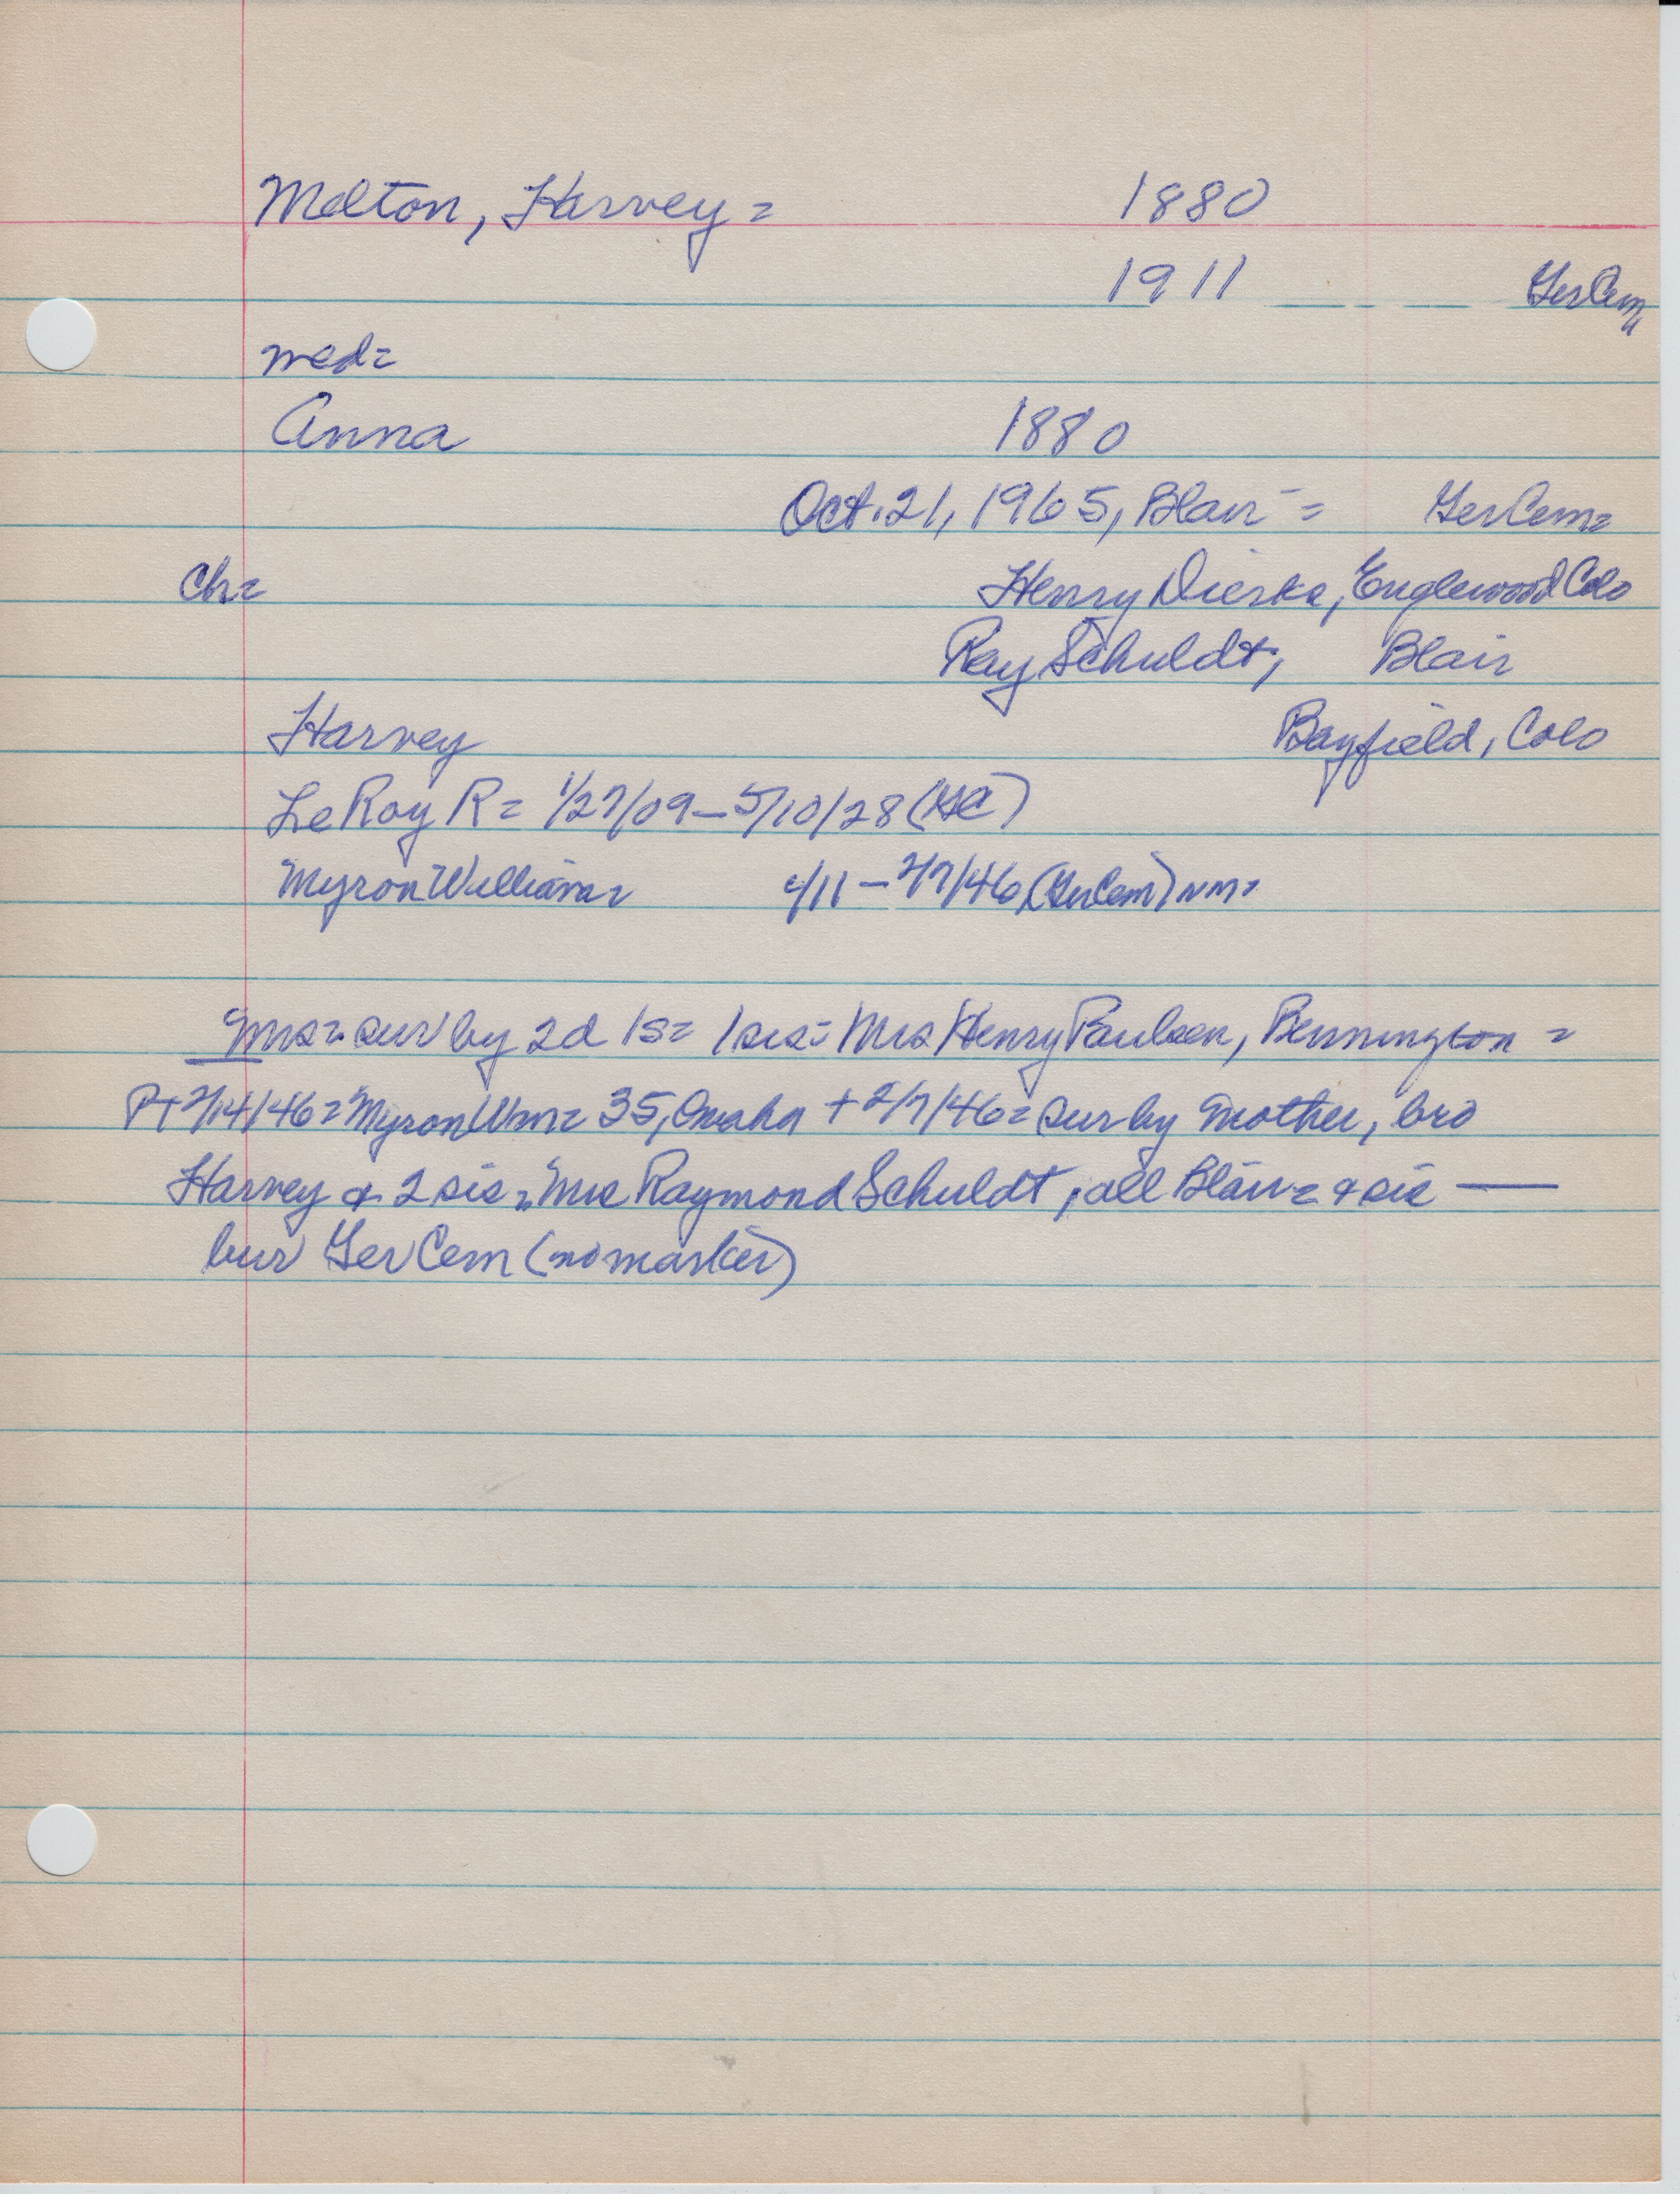 Melton, Harvey = 1880
1911 GerCem
med=
Anna 1880
Oct. 21, 1965, Blair = GerCem=
Ch= Henry Dierks, Englewood Colo
Ray Schuldt, Blair
Harvey Bayfield, Colo
LeRoy R = 1/27/09 - 5/10/28 (GC)
Myron William= c/11 - 2/7/46 (GerCem) nm=
Mrs= sur by 2d 1s= 1 sis= Mrs Henry Paulsen, Bennington =
PT 2/14/46 = Myron Wm= 35, Omaha + 2/7/46= sur by mother, bro
Harvey & 2 sis = Mrs Raymond Schuldt, all Blair= & sis —
bur Ger Cem (no marker)